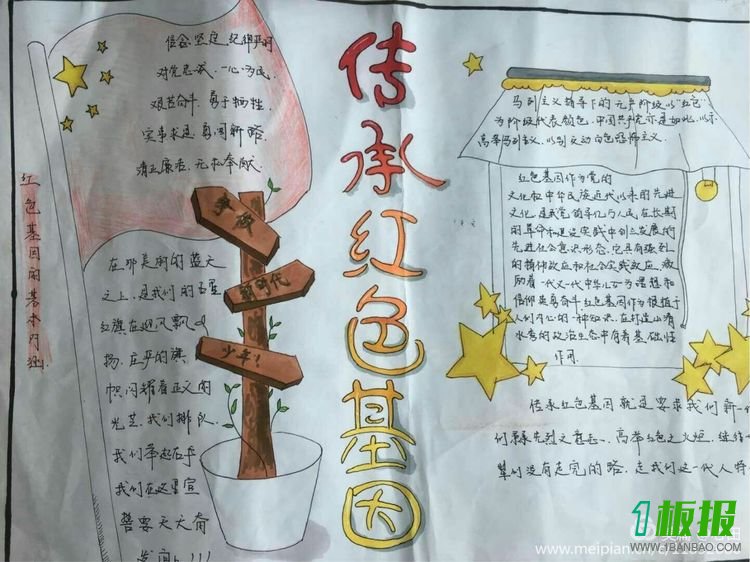 传承红色基因
红色基因的基本内涵
信念坚定,纪律严明
对党忠诚,一心为民,
艰苦奋斗,勇于牺牲,
实事求是,勇闯新路,
清正廉洁,无私奉献
争做
新时代
少年!
在那美丽的蓝天
之上,是我们的五星
红旗在迎风飘
扬,庄严的旗
帜闪耀着正义的
光芒,我们排队
我们举起右手
我们在这里宣
誓要天天奋
发向上!!!
马列主义指导下的无产阶级以"红色"
为阶级代表颜色,中国共产党亦是如此,以示
高举马列主义,以别交动白色恐怖主义。
红色基因作为党的
文化和中华民族近代以来的先进
文化,是我党领导亿万人民在长期
的革命和建设实践中创立发展的
先进社会意识形态,它具有强烈
的精神效应和社会实践效应,激
励着一代又一代中华儿女为理想和
信仰英勇奋斗红色基因作为根植于
人们内心的一种知识,在打造山清
水秀的政治生态中有着基础性
作用.
传承红色基因就是要求我们新一代
们秉承先烈之意志,高举红色之火炬,继续
辈们没有走完的路,走我们这一代人
1板报
WWW.1BANBAO.COM
www.meipian.cn